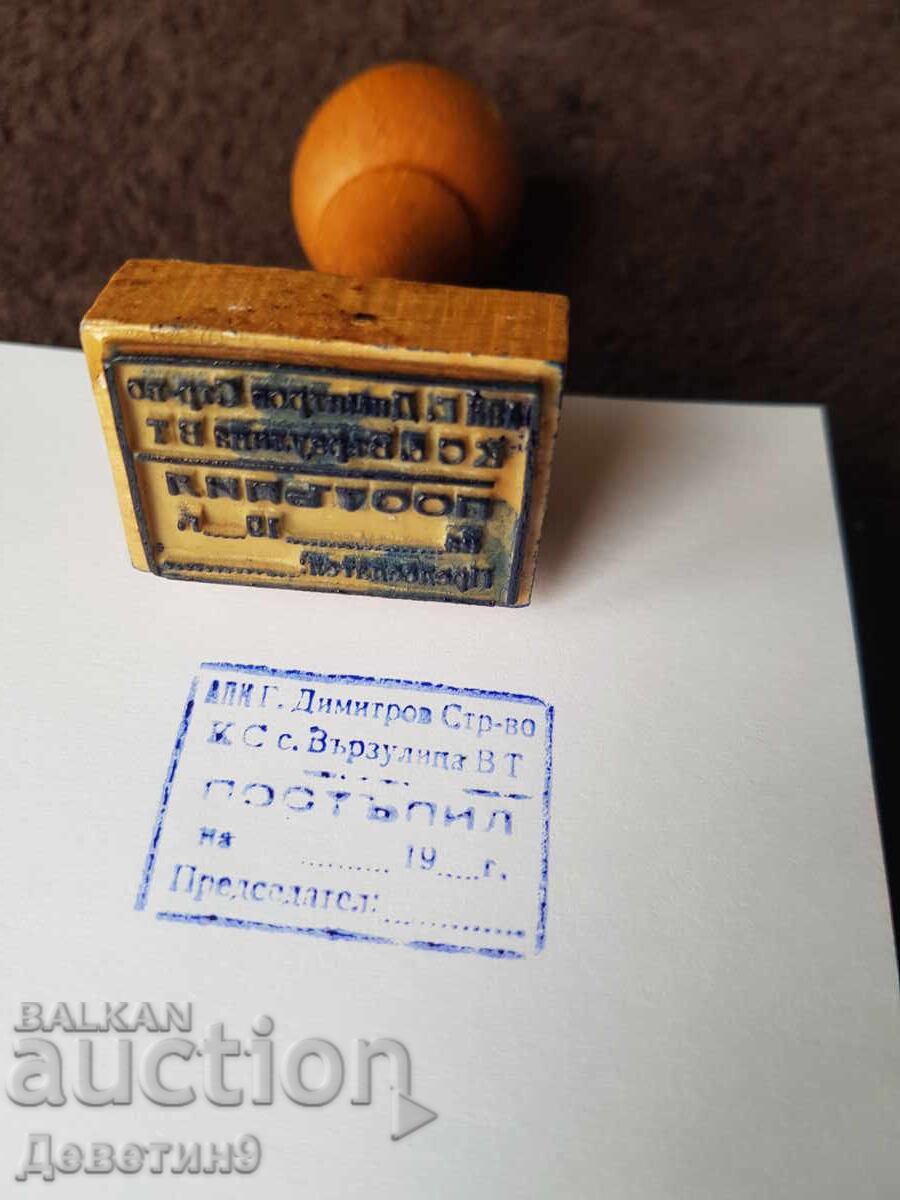 АПК Г. Димитров Стр-во
К С с. Вързулица В Т
ПОСТЪПИЛ
на .......... 19.....г.
Председател: ..............
BALKAN
auction
Деветин9